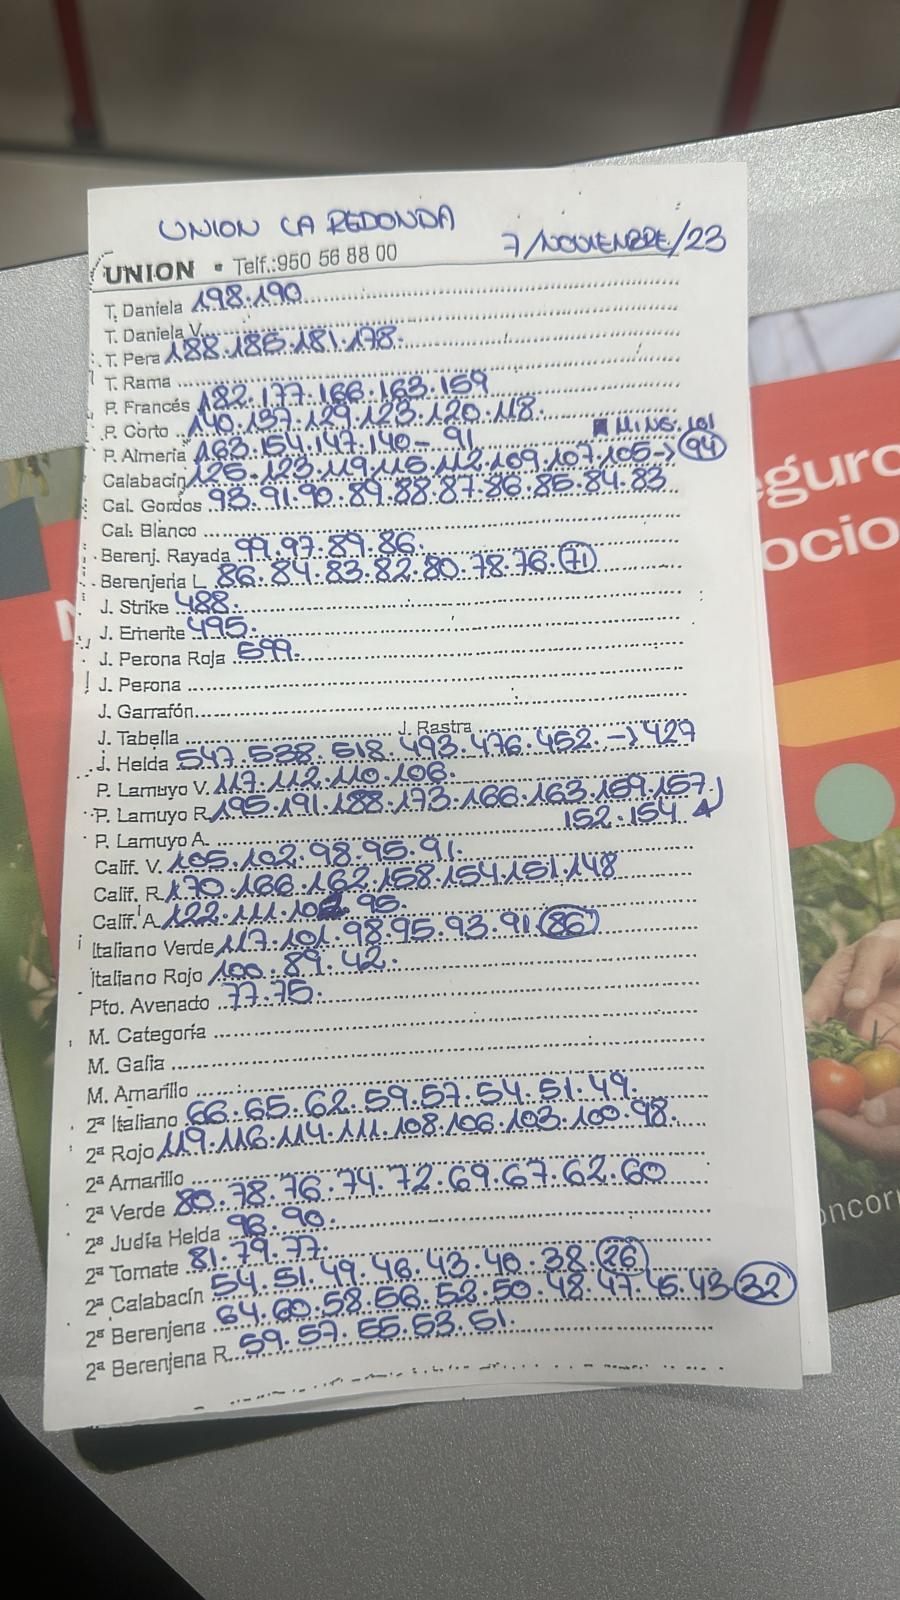 UNION LA REDONDA
7/NOVIEMBRE/23
UNION • Telf.:950 56 88 00
T. Daniela 198.190
T. Daniela V.
T. Pera 188.185.181.178.
T. Rama
P. Francés 182.177.166.163.159
P. Corto 140.137.129.123.120.118.
P. Almeria 163.154.147.140-91 MINS.101
Calabacín 125.123.119.115.112.109.107.105→94
Cal. Gordos 93.91.90.89.88.87.86.85.84.83
Cal. Blanco
Berenj. Rayada 99.97.89.86.
Berenjena L 86.84.83.82.80.78.76.71
J. Strike 488.
J. Emerite 495.
J. Perona Roja 599.
J. Perona
J. Garrafón
J. Tabella J. Rastra
J. Helda 547.538.518.493.476.452.→429
P. Lamuyo V. 117.112.110.106.
P. Lamuyo R. 195.191.188.173.166.163.159.157
152.154
P. Lamuyo A.
Calif. V. 105.102.98.95.91.
Calif. R. 170.166.162.158.154.151.148
Calif. A. 122.111. 95.
Italiano Verde 117.101.98.95.93.91 86
Italiano Rojo 100.89.42.
Pto. Avenado 77.75.
M. Categoría
M. Galia
M. Amarillo
2ª Italiano 66.65.62.59.57.54.51.49.
2ª Rojo 119.116.114.111.108.106.103.100.98.
2ª Amarillo
2ª Verde 80.78.76.74.72.69.67.62.60
2ª Judía Helda 96.90.
2ª Tomate 81.79.77.
2ª Calabacín 54.51.49.46.43.40.38.26
2ª Berenjena 64.60.58.56.52.50.48.47.45.43.32
2ª Berenjena R. 59.57.55.53.51.